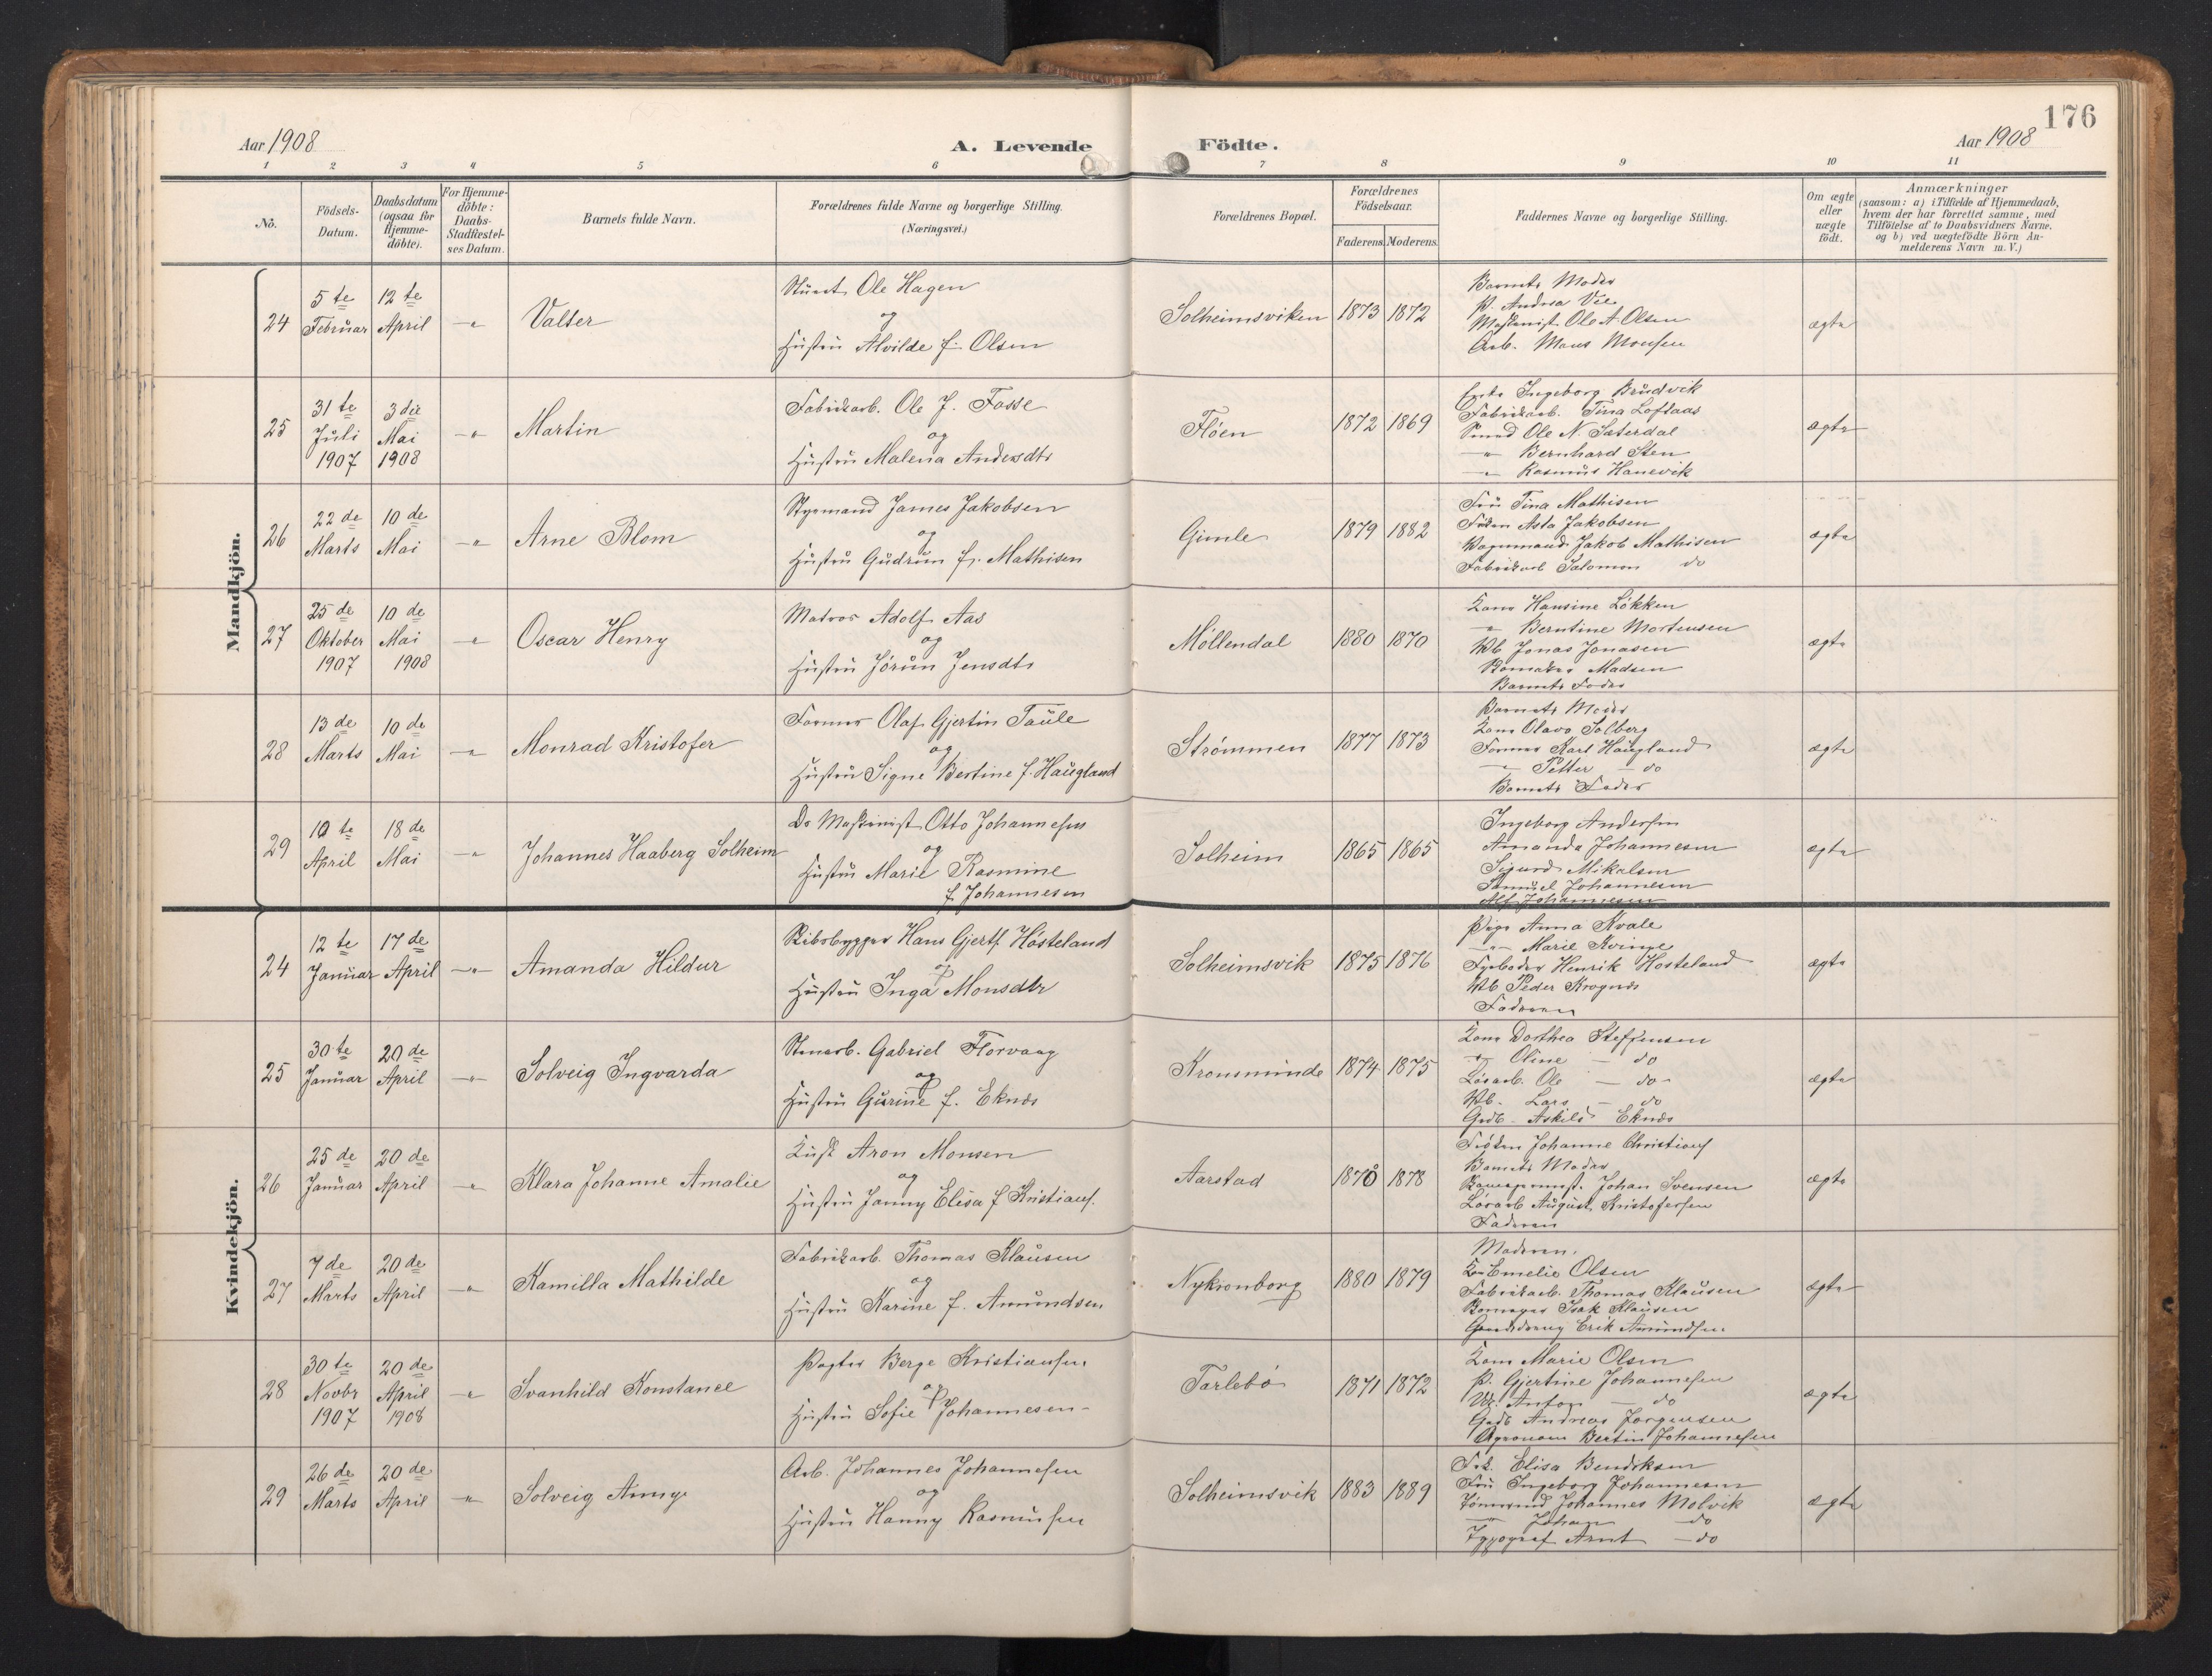 176
Aar 1908
A. Levende Födte.
Aar 1908
1 2 3 4 5 6 7 8 9 10 11
No.
Födsels-Datum.
Daabsdatum (ogsaa for Hjemmedöbte).
For Hjemmedöbte: Daabs-Stadfæstelses Datum.
Barnets fulde Navn.
Forældrenes fulde Navne og borgerlige Stilling.
(Næringsvei.)
Forældrenes Bopæl.
Forældrenes Födselsaar.
Faderens. Moderens.
Faddernes Navne og borgerlige Stilling.
Om ægte eller uægte födt.
Anmærkninger
(saasom: a) i Tilfælde af Hjemmedaab,
hvem der har forrettet samme, med
Tilföielse af to Daabsvidners Navne,
og b) ved uægtefödte Börn Anmelderens Navn m. V.)
Mandkjön.
24
5te Februar
12te April
Valter
Stuert Ole Hagen
og
Hustru Alvilde f. Olsen
Solheimsviken
1873 1872
Barnets Moder
P. Andrea Vee
Maskinist Ole A. Olsen
Arb. Mons Monsen
ægte
25
31te Juli 1907
3die Mai 1908
Martin
Fabrikarb. Ole J. Fosse
og
Hustru Malena Andersdtr
Fløen
1872 1869
Enke Ingeborg Brudvik
Fabrikarb. Tina Loftaas
Smed Ole N. Sæterdal
" Bernhard Sten
" Rasmus Hanevik
ægte
26
22de Marts
10de Mai
Arne Blom
Styrmand James Jakobsen
og
Hustru Gudrun f. Mathisen
Gimle
1879 1882
Fru Tina Mathisen
Frøken Asta Jakobsen
Vognmand Jakob Mathisen
Fabrikarb Salomon do
ægte
27
25de Oktober 1907
10de Mai 1908
Oscar Henry
Matros Adolf Aas
og
Hustru Jørun Jensdtr
Møllendal
1880 1870
Kone Hansine Løkken
" Berntine Mortensen
Jonas Jonasen
Madsen
Barnets Fader
ægte
28
13de Marts
10de Mai
Monrad Kristofer
Former Olaf Gjertin Taule
og
Hustru Signe Bertine f. Haugland
Strømmen
1877 1873
Barnets Moder
Kone Olava Solberg
Former Karl Haugland
" Petter do
Barnets Fader
ægte
29
10te April
18de Mai
Johannes Haaberg Solheim
Ds Maskinist Otto Johannesen
og
Hustru Marie Rasmine
f. Johannesen
Solheim
1865 1865
Ingeborg Andersen
Amanda Johannesen
Sigurd Mikalsen
Samuel Johannesen
Alf Johannesen
ægte
Kvindekjön.
24
12te Januar
17de April
Amanda Hildur
Skibsbygger Hans Gjertf Høsteland
og
Hustru Inga Monsdtr
Solheimsvik
1875 1876
Pige Anna Kvale
" Marie Kvinge
Fyrbøder Henrik Hosteland
Peder Krognes
Faderen
ægte
25
30te Januar
20de April
Solveig Ingvarda
Stenarb. Gabriel Florvaag
og
Hustru Gurine f. Eknes
Kronsminde
1874 1875
Kone Dorthea Steffensen
" Oline do
Løsarb. Ole do
Lars do
Gdb. Askild Eknes
ægte
26
25de Januar
20de April
Klara Johanne Amalie
Kusk Aron Monsen
og
Hustru Janny Elisa f Kristians.
Aarstad
1870 1878
Frøken Johanne Christians
Barnets Moder
Johan Svensen
Løsarb August Kristofersen
Faderen
ægte
27
7de Marts
20de April
Kamilla Mathilde
Fabrikarb. Thomas Klausen
og
Hustru Karine f. Amundsen
Nykronborg
1880 1879
Moderen.
Emelie Olsen
Fabrikarb. Thomas Klausen
Isak Klausen
Erik Amundsen
ægte
28
30te Novbr 1907
20de April 1908
Svanhild Konstance
Pagter Berge Kristiansen
og
Hustru Sofie Johannesen
Tarlebø
1871 1872
Kone Marie Olsen
P. Gjertine Johannesen
Uk. Anton do
Gdb Andreas Jørgensen
Agronom Bertin Johannesen
ægte
29
26de Marts
20de April
Solveig Anny
Arb. Johannes Johannesen
og
Hustru Hanny Rasmusen
Solheimsvik
1883 1889
Frk. Elisa Bendiksen
Fru Ingeborg Johannesen
Tømmermd Johannes Molvik
" Johan do
Typograf Arnt do
ægte